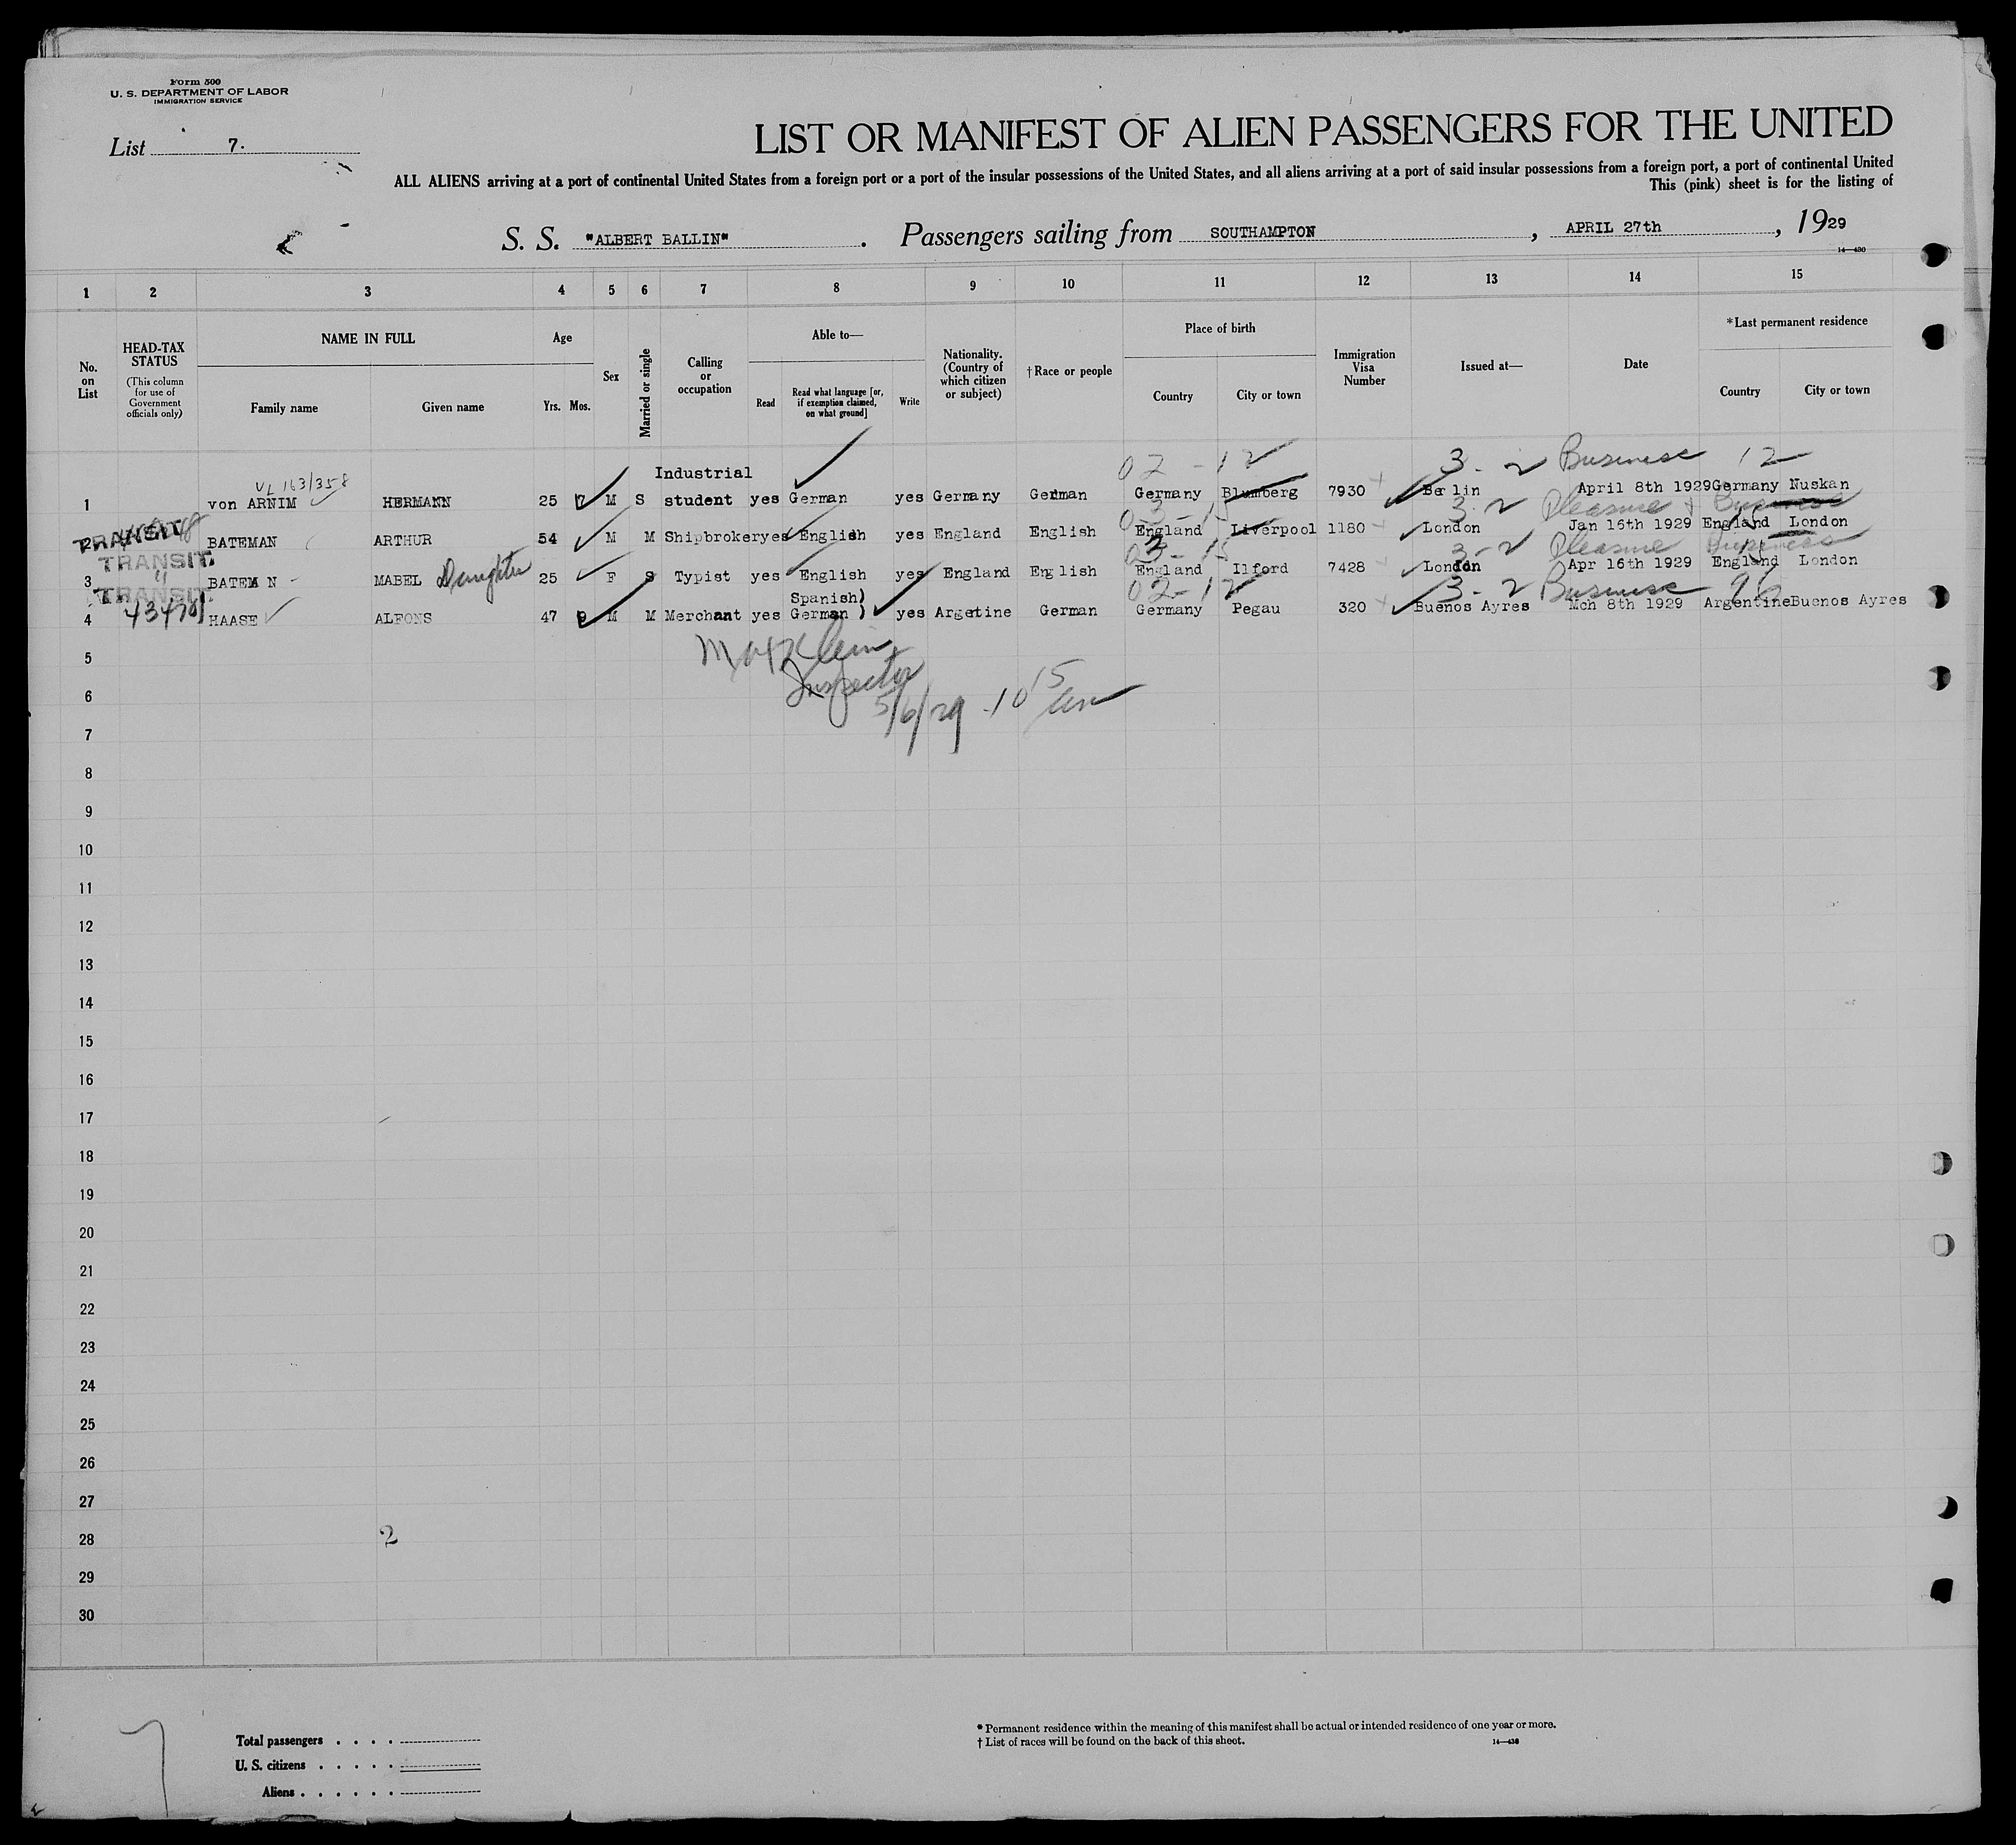 Form 500
U. S. DEPARTMENT OF LABOR
IMMIGRATION SERVICE
List 7.
LIST OR MANIFEST OF ALIEN PASSENGERS FOR THE UNITED
ALL ALIENS arriving at a port of continental United States from a foreign port or a port of the insular possessions of the United States, and all aliens arriving at a port of said insular possessions from a foreign port, a port of continental United
This (pink) sheet is for the listing of
S. S. "ALBERT BALLIN". Passengers sailing from SOUTHAMPTON, APRIL 27th, 1929
14—430
1 2 3 4 5 6 7 8 9 10 11 12 13 14 15
No. on List
HEAD-TAX STATUS
(This column for use of Government officials only)
NAME IN FULL
Family name
Given name
Age
Yrs. Mos.
Sex
Married or single
Calling or occupation
Able to—
Read
Read what language [or, if exemption claimed, on what ground]
Write
Nationality. (Country of which citizen or subject)
†Race or people
Place of birth
Country
City or town
Immigration Visa Number
Issued at—
Date
*Last permanent residence
Country
City or town
VL 163/358 02-12 3-2 Business 12
1 von ARNIM HERMANN 25 7 M S Industrial student yes German yes Germany German Germany Blumberg 7930 Berlin April 8th 1929 Germany Nuskan
03-15 3-2 Pleasure & Business 15
2 TRANSIT BATEMAN ARTHUR 54 M M Shipbroker yes English yes England English England Liverpool 1180 London Jan 16th 1929 England London
TRANSIT
03-15 3-2 Pleasure Business 15
3 " BATEM N MABEL Daughter 25 F S Typist yes English yes England English England Ilford 7428 London Apr 16th 1929 England London
TRANSIT
02-12 3-2 Business 96
4 HAASE ALFONS 47 9 M M Merchant yes Spanish) German ) yes Argetine German Germany Pegau 320 Buenos Ayres Mch 8th 1929 Argentine Buenos Ayres
Max Klein
Inspector
5/6/29 10 15 am
5
6
7
8
9
10
11
12
13
14
15
16
17
18
19
20
21
22
23
24
25
26
27
28 2
29
30
7
Total passengers . . . .
U. S. citizens . . . . .
Aliens . . . . . .
* Permanent residence within the meaning of this manifest shall be actual or intended residence of one year or more.
† List of races will be found on the back of this sheet.
14—430